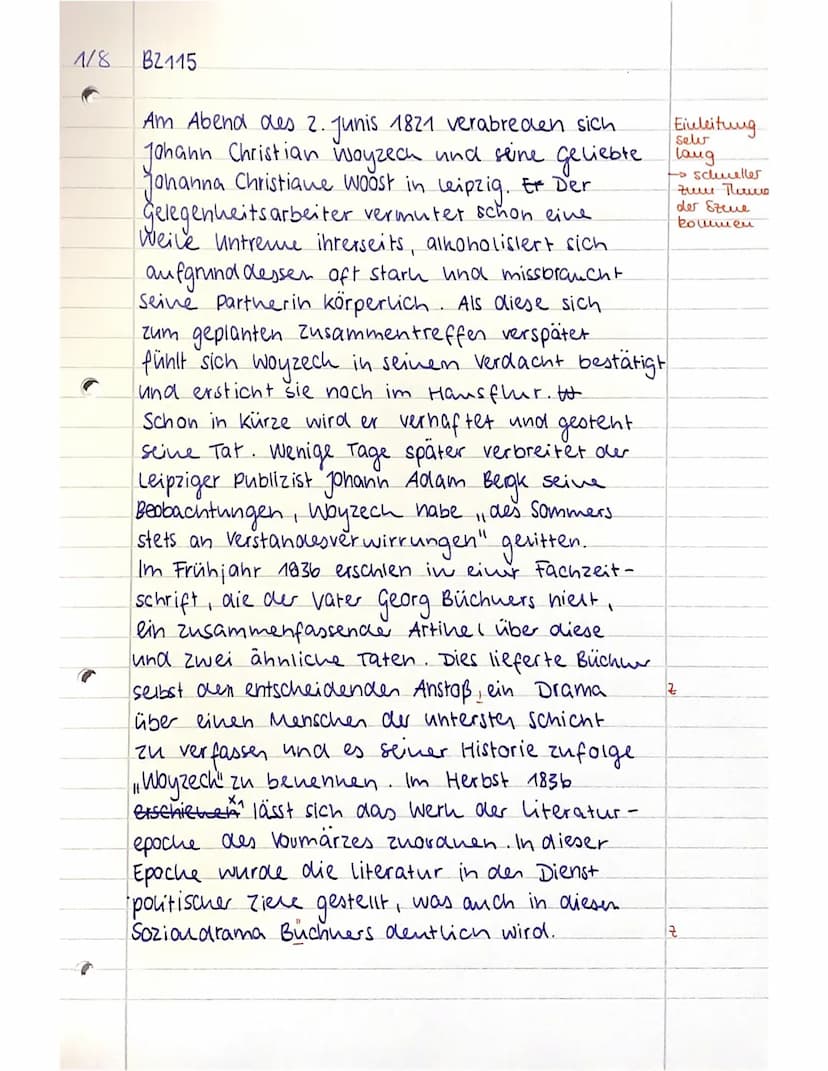 1/8 BZ115
Am Abend des 2. Junis 1821 verabreden sich
Johann Christian Woyzeck und seine Geliebte
Johanna Christiane Woost in Leipzig. Er Der
Gelegenheitsarbeiter vermutet schon eine
Weile Untreue ihrerseits, alkoholisiert sich
aufgrund dessen oft stark und missbraucht
seine Partnerin körperlich. Als diese sich
zum geplanten Zusammentreffen verspätet
fühlt sich Woyzeck in seinem Verdacht bestätigt
und ersticht sie noch im Hausflur.
Schon in Kürze wird er verhaftet und gesteht
seine Tat. Wenige Tage später verbreitet der
Leipziger Publizist Johann Adam Bergk seine
Beobachtungen, Woyzeck habe „des Sommers
stets an Verstandesverwirrungen" gelitten.
Im Frühjahr 1836 erschien in einer Fachzeit-
schrift, die der Vater Georg Büchners hielt,
ein zusammenfassender Artikel über diese
und zwei ähnliche Taten. Dies lieferte Büchner
selbst den entscheidenden Anstoß, ein Drama
über einen Menschen der untersten Schicht
zu verfassen und es seiner Historie zufolge
„Woyzeck" zu benennen. Im Herbst 1836
erschienen lässt sich das Werk der Literatur-
epoche des Vormärzes zuordnen. In dieser
Epoche wurde die Literatur in den Dienst
politischer Ziele gestellt, was auch in diesem
Sozialdrama Büchners deutlich wird.
Einleitung
sehr
lang
→ schneller
zum Thema
der Szene
kommen
Z
Z